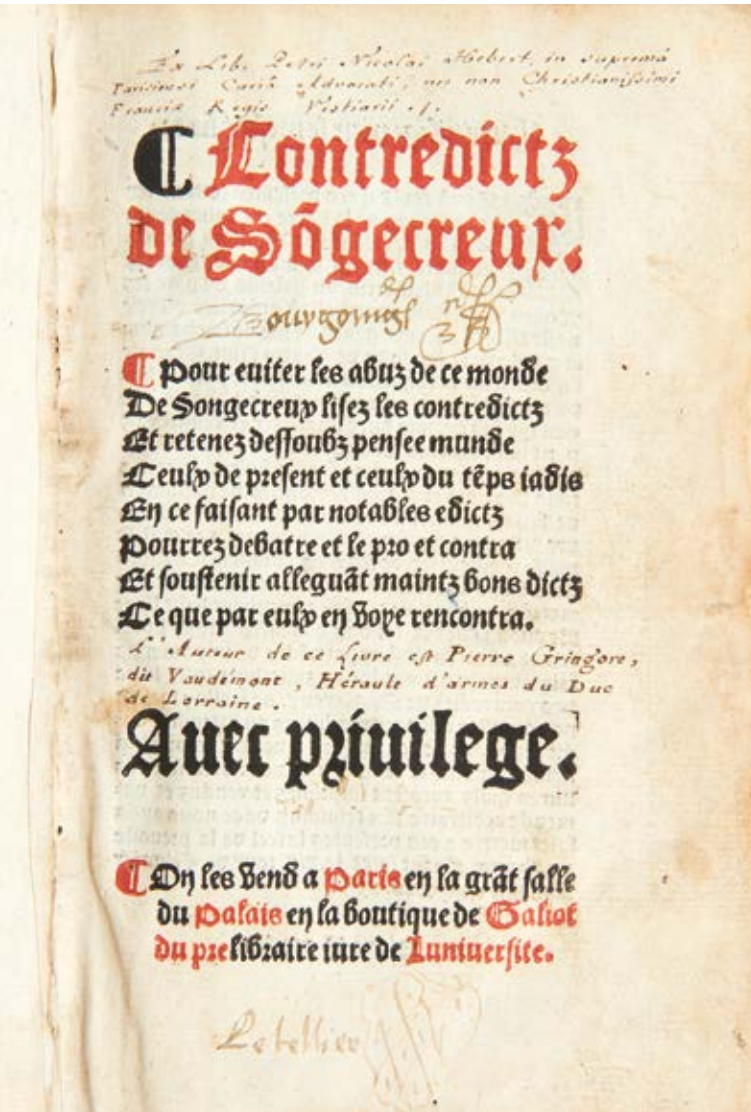 Ex Lib. Petri Nicolai Hebert, in suprema
Parisiensi Curiâ Advocati, nec non Christianissimi
Franciæ Regis Vestiarii
¶ Contredictz
de Sõgecreux.
¶ Pour euiter les abuz de ce monde
De Songecreux lisez les contredictz
Et retenez dessoubz pensee munde
Ceulx de present et ceulx du tẽps iadis
En ce faisant par notables edictz
Pourrez debatre et le pro et contra
Et soustenir alleguãt maintz bons dictz
Ce que par eulx en voye rencontra.
L'Auteur de ce Livre est Pierre Gringore,
dit Vaudémont, Héraule d'armes du Duc
de Lorraine.
Auec priuilege.
¶ On les vend a Paris en la grãt salle
du Palais en la boutique de Galiot
du pre libraire iure de Luniuersite.
Letellier